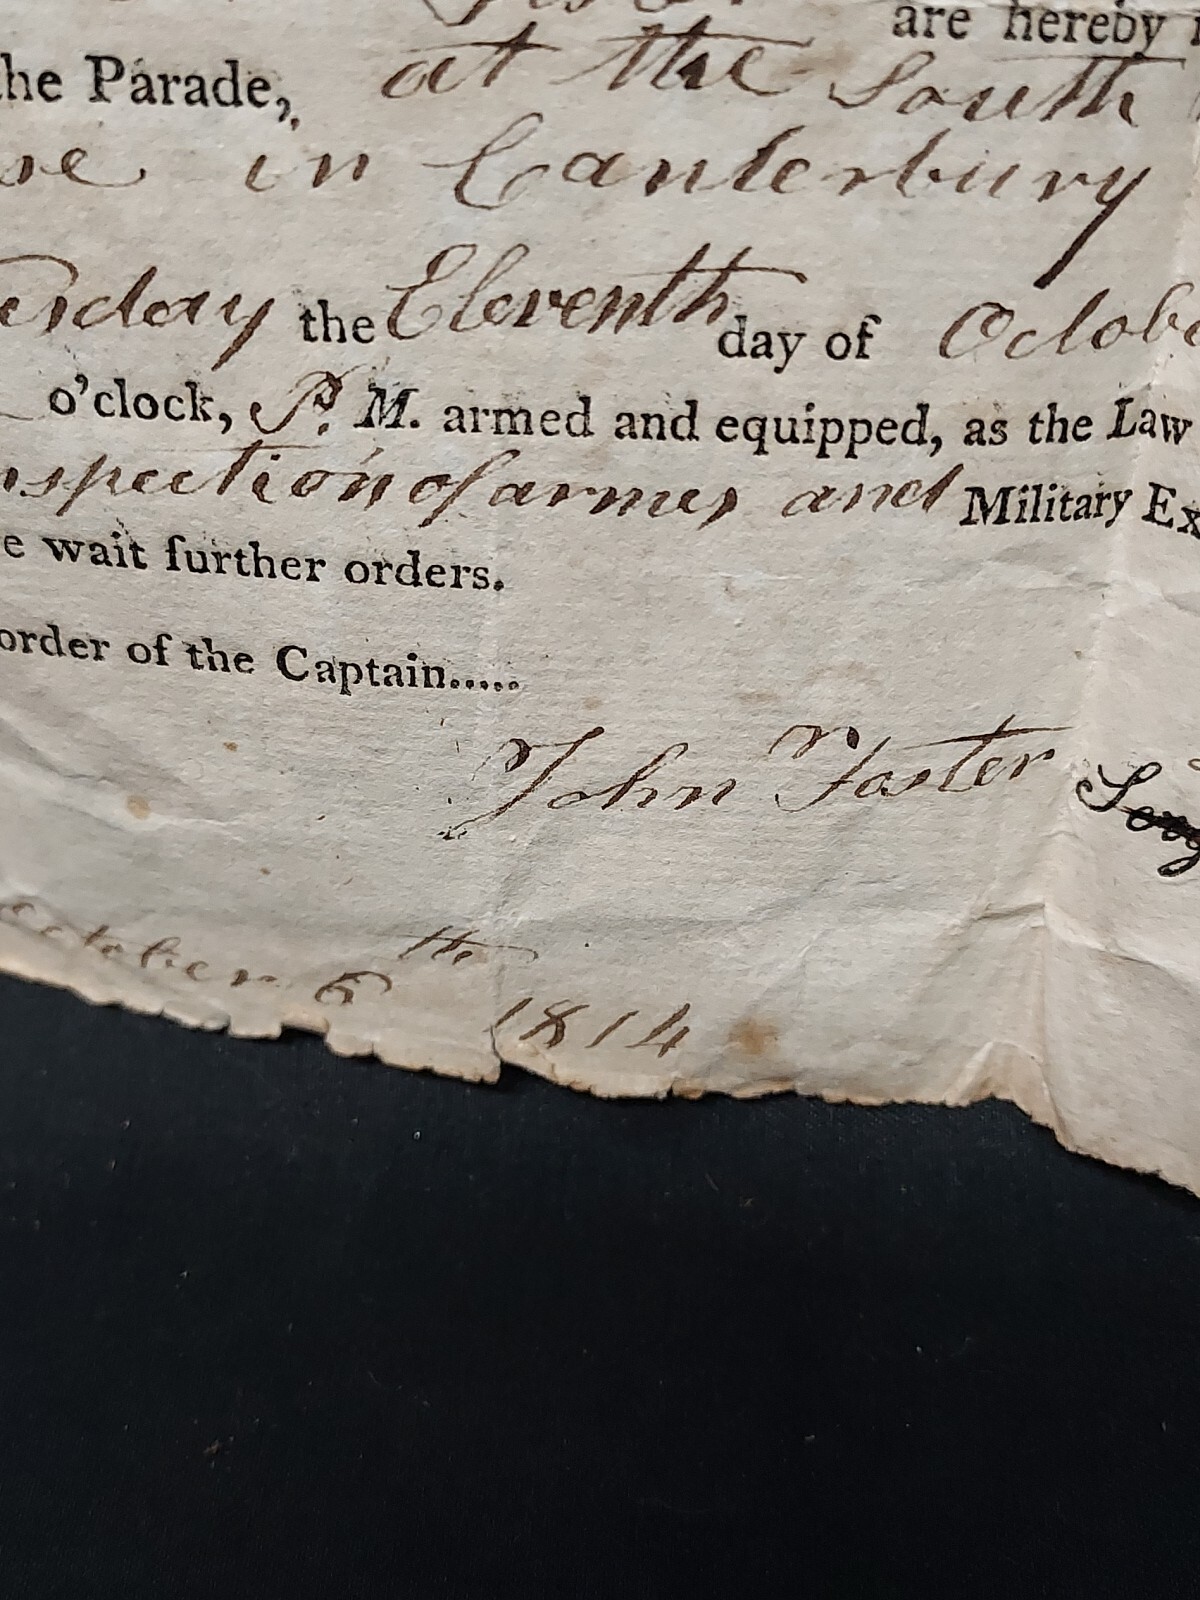 are hereby
the Parade, at the South
se in Canterbury
the Eleventh day of Octobe
o'clock, P. M. armed and equipped, as the Law
nspection of armes and Military Ex
e wait further orders.
order of the Captain.....
John Foster Serg
October 6th 1814